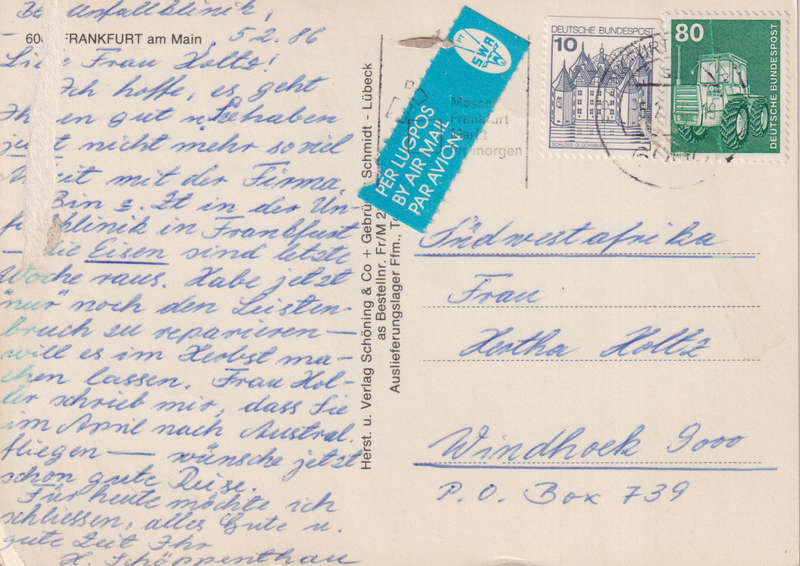 unfallklinik,
FRANKFURT am Main 5.2.86
Liebe Frau Holtz!
Ich hoffe, es geht
Ihnen gut u. Sie haben
jetzt nicht mehr so viel
Arbeit mit der Firma.
Bin z. Zt in der Un-
fallklinik in Frankfurt
– die Eisen sind letzte
Woche raus. Habe jetzt
"nur" noch den Leisten-
bruch zu reparieren –
will es im Herbst ma-
chen lassen. Frau Hol-
ler schrieb mir, dass Sie
im April nach Austral.
fliegen – wünsche jetzt
schon gute Reise.
Für heute möchte ich
schliessen, alles Gute u.
gute Zeit Ihr
H. Schöppenthau
Herst. u. Verlag Schöning & Co + Gebrü Schmidt - Lübeck
as Bestellnr. Fr/M 2
Auslieferungslager Ffm., T
PER LUFTPOST
BY AIR MAIL
PAR AVION
SWB
W
Messe
Frankfurt
Markt
morgen
DEUTSCHE BUNDESPOST
10
80
DEUTSCHE BUNDESPOST
Südwestafrika
Frau
Hertha Holtz
Windhoek 9000
P.O. Box 739